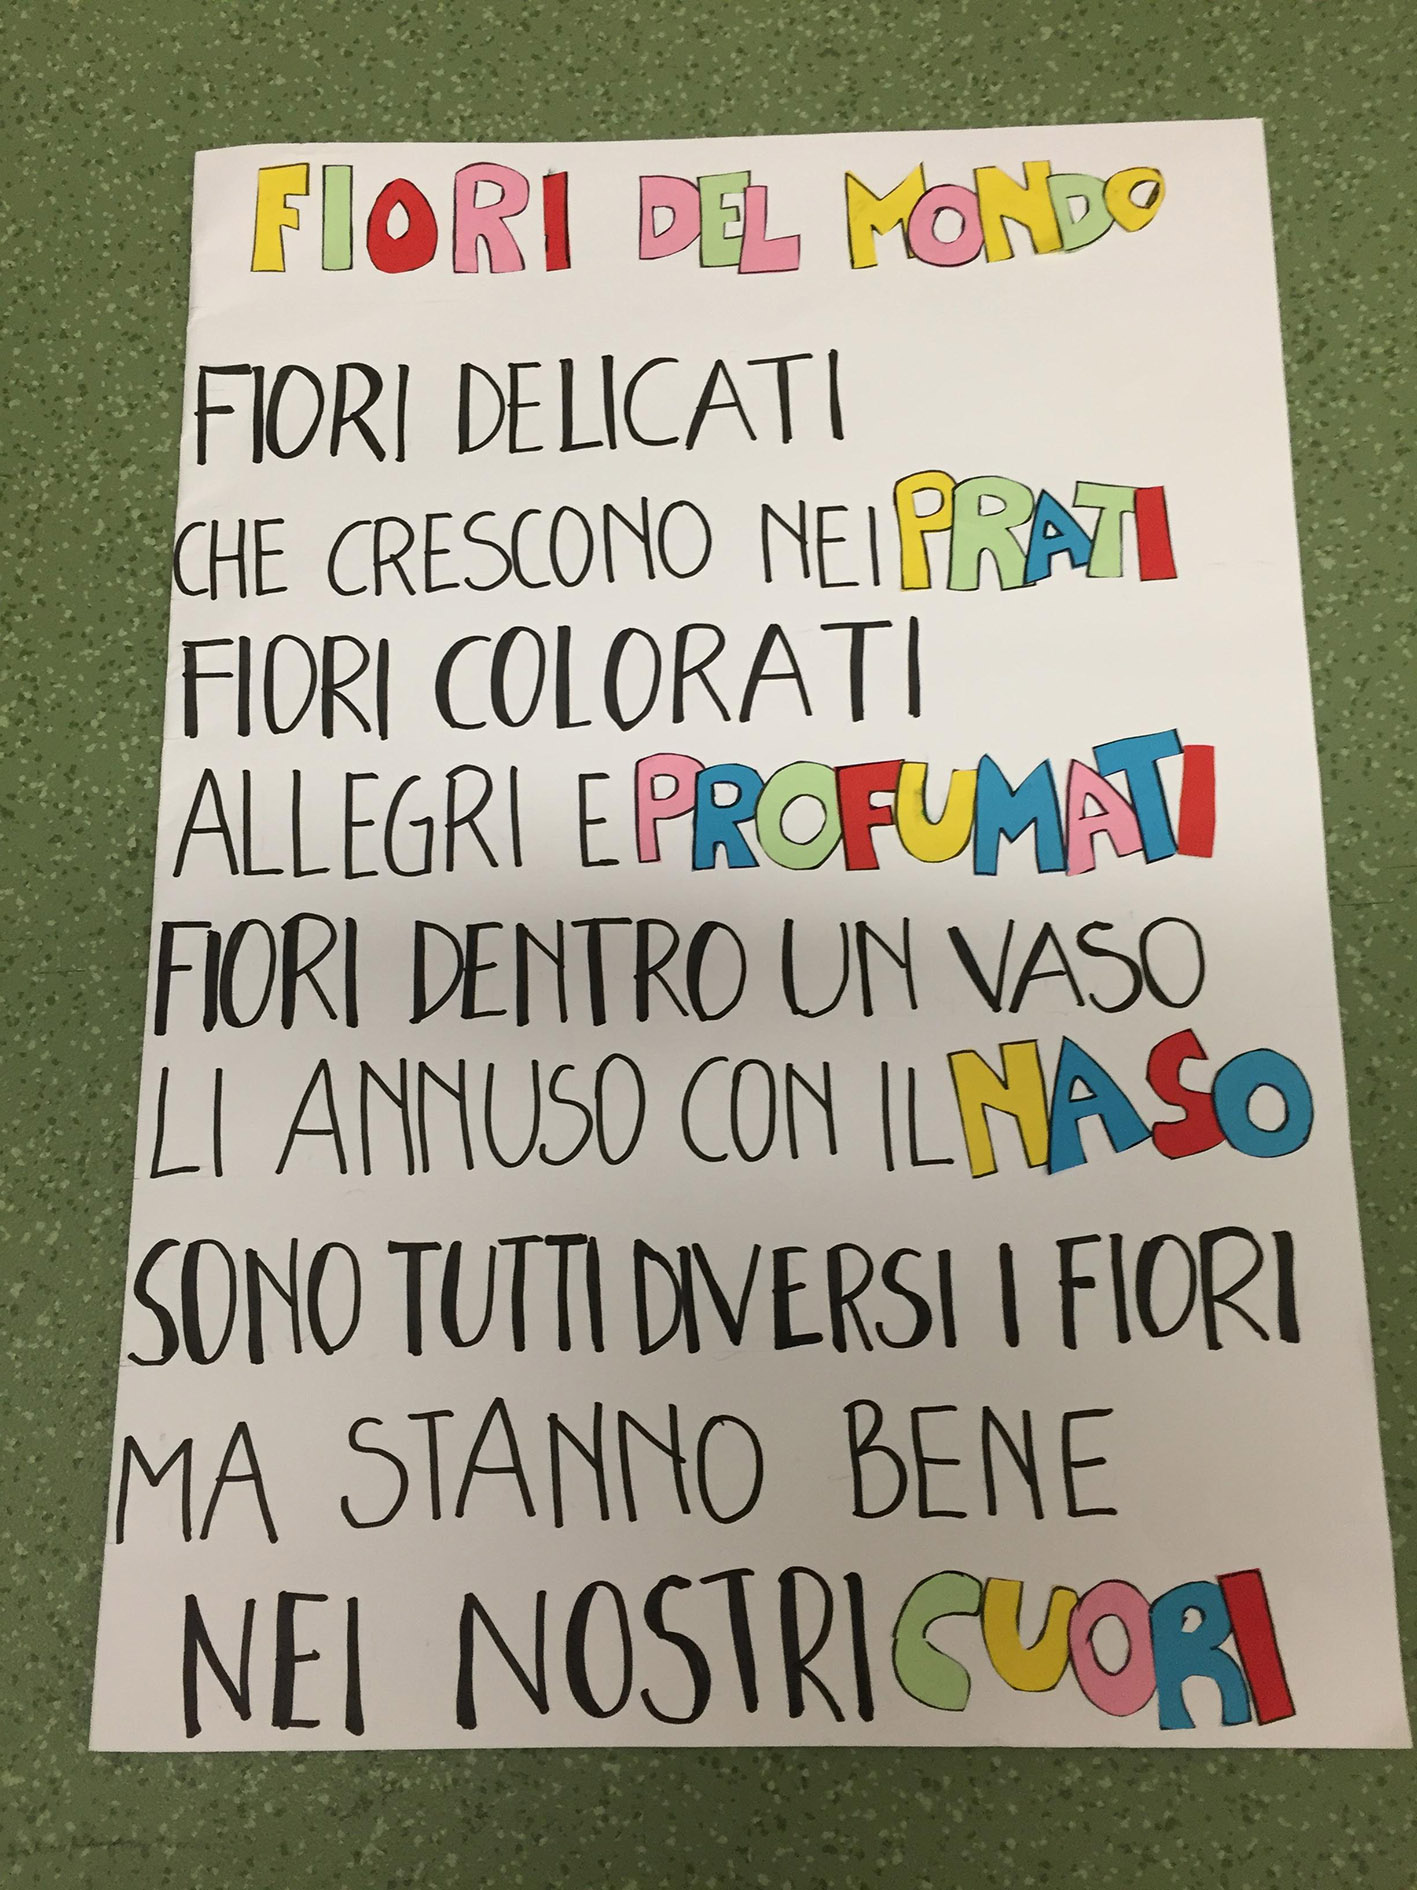 FIORI DEL MONDO
FIORI DELICATI
CHE CRESCONO NEI PRATI
FIORI COLORATI
ALLEGRI E PROFUMATI
FIORI DENTRO UN VASO
LI ANNUSO CON IL NASO
SONO TUTTI DIVERSI I FIORI
MA STANNO BENE
NEI NOSTRI CUORI